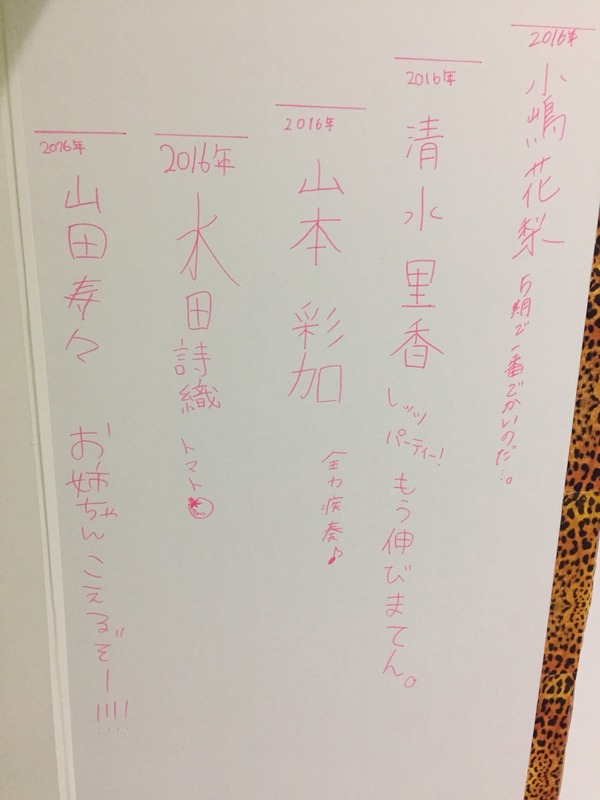 2016年
小嶋花梨
5期で一番でかいのだ…。
2016年
清水里香
レッツパーティー!
もう伸びまてん。
2016年
山本彩加
全力疾奏♪
2016年
水田詩織
トマト
2016年
山田寿々
お姉ちゃんこえるぞー!!!!